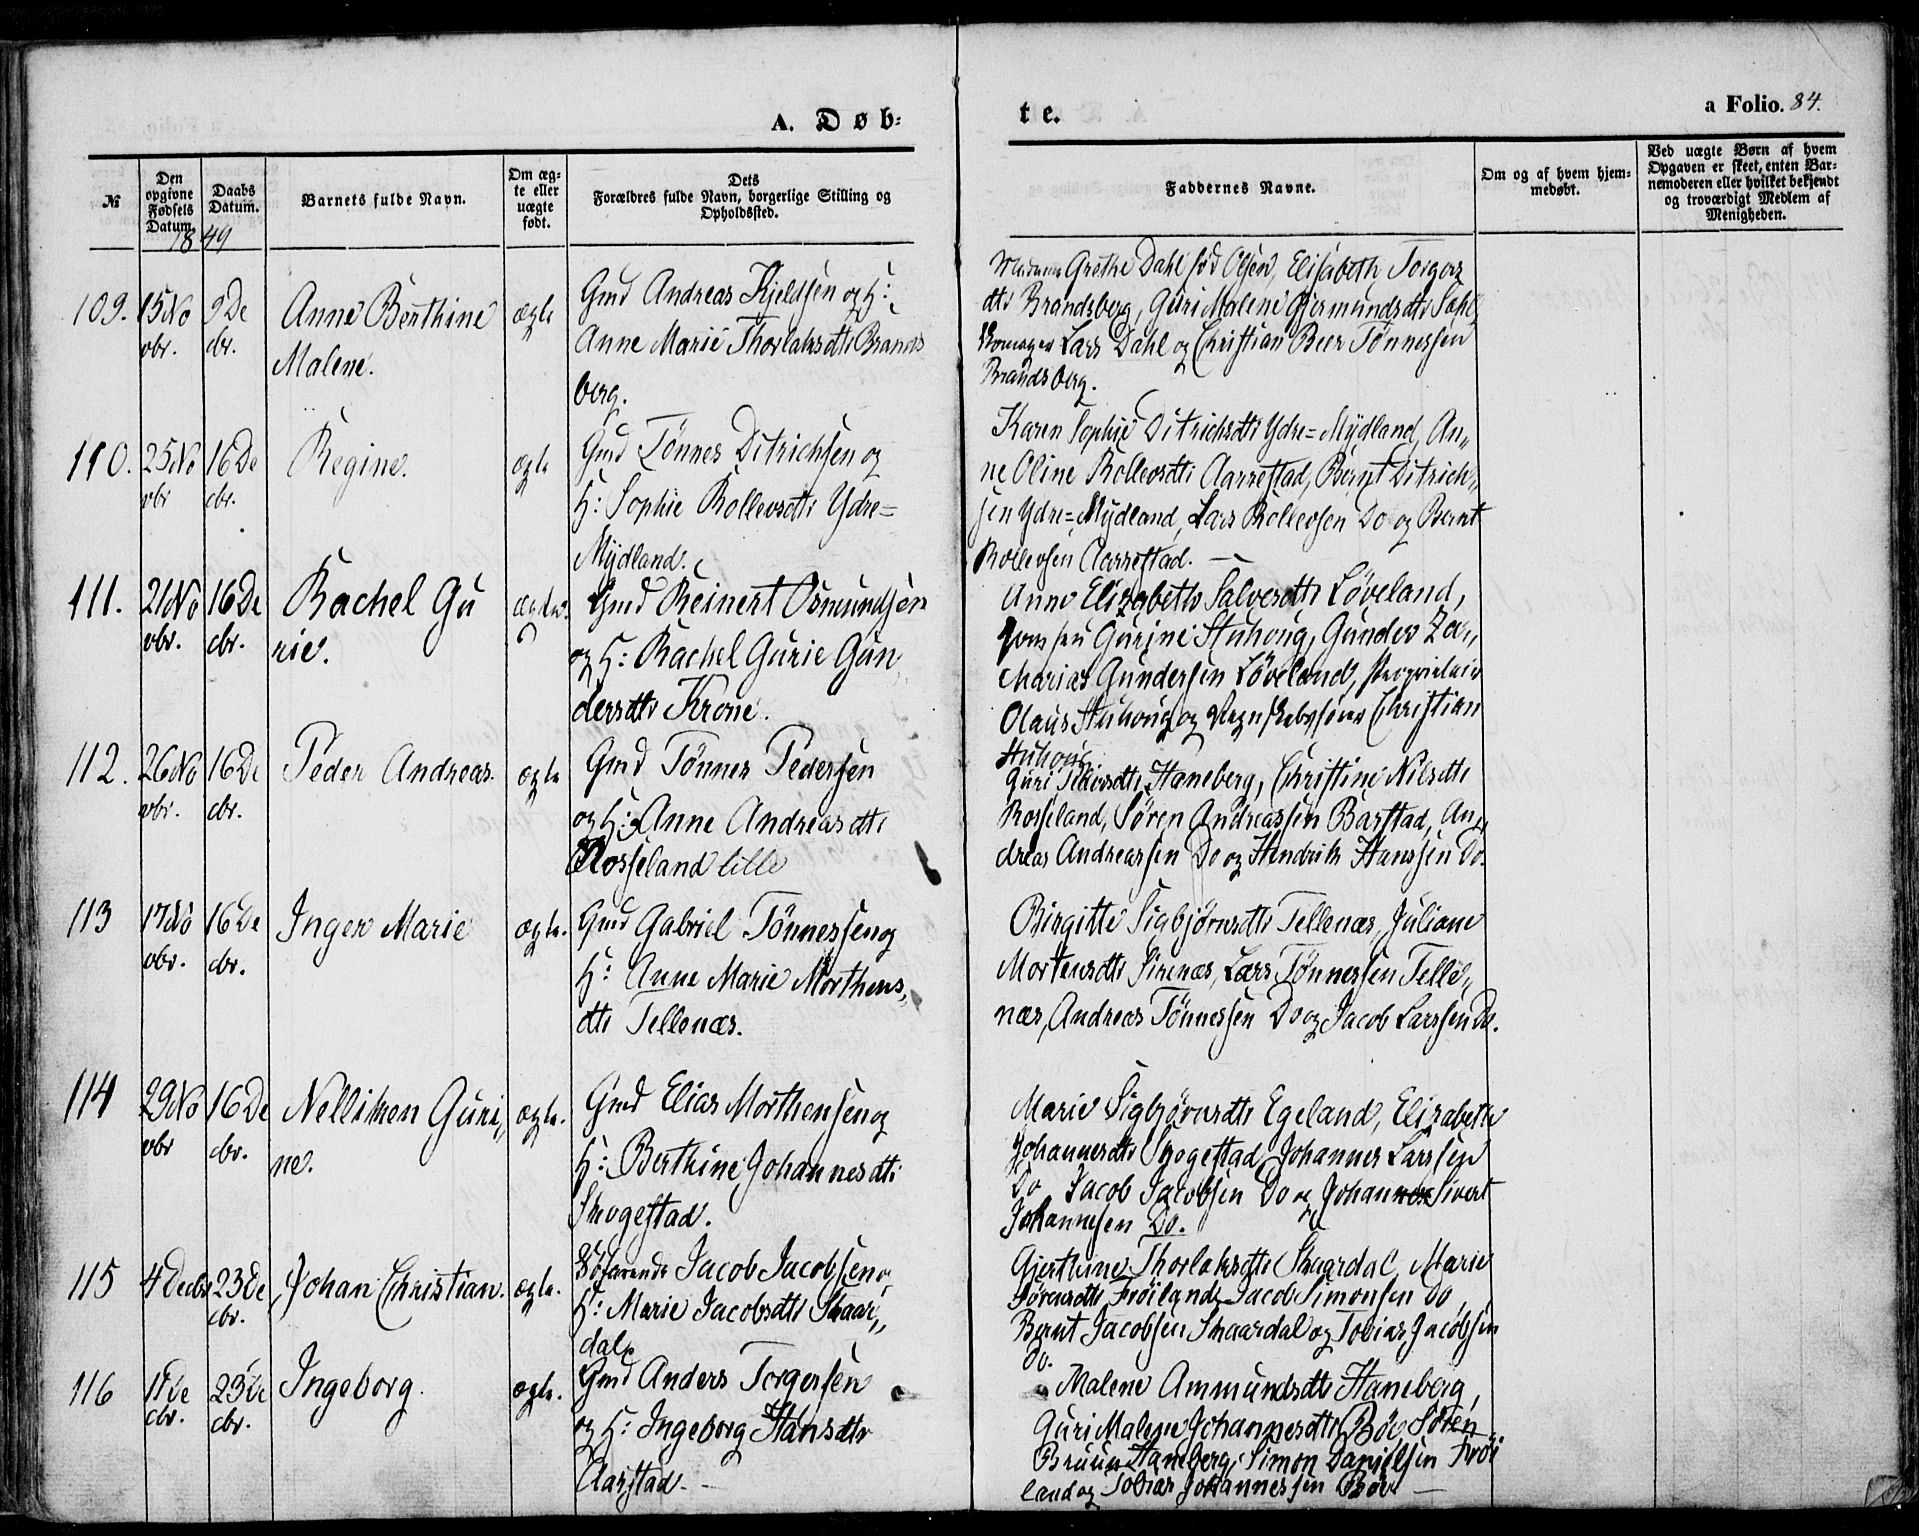 A. Døb-
te.
a Folio. 84.
№
Den opgivne Fødsels Datum.
Daabs Datum.
Barnets fulde Navn.
Om ægte eller uægte født.
Dets Forældres fulde Navn, borgerlige Stilling og Opholdssted.
Faddernes Navne.
Om og af hvem hjemmedøbt.
Ved uægte Børn af hvem Opgaven er skeet, enten Barnemoderen eller hvilket bekjendt og troværdigt Medlem af Menigheden.
1849
109. 15 No 9 De Anne Berthine ægte Gmd Andreas Kjeldsen og H:
vbr. cbr. Malene. Anne Marie Thorlaksdtr Brands
berg.
Grethe Dahl fød Olsen, Elisabeth Torgers
dtr Brandsberg, Guri Malene Gjermundsdtr
Lars Dahl og Christian Beer Tønnessen
Brandsberg.
110. 25 No 16 De Regine. ægte Gmd Tønnes Ditrichsen og
vbr cbr. H: Sophie Rollevsdtr Ydre=
Mydland.
Karen Sophie Ditrichsdtr Ydre=Mydland, An„
ne Oline Rollevsdtr Aarrestad, Bernt Ditrich„
sen Ydre=Mydland, Lars Rollevsen Do og Bernt
Rollevsen Aarrestad. —
111. 21 No 16 De Rachel Gu Gmd Reinert Osmundsen
vbr. cbr. rie. og H: Rachel Gurie Gun
dersdtr Krone.
Anne Elizabeth Salvesdtr Løveland,
Gurine Stuhoug, Gunder Za„
charias Gundersen Løveland, Proprietair
Olaus Stuhoug og Christian
Stuhoug
112. 26 No 16 De Peder Andreas. ægte Gmd Tønnes Pedersen
vbr. cbr. og H: Anne Andreasdtr
Rosseland lille
Guri Haneberg, Christine Nilsdtr
Rosseland, Søren Andreassen Barstad, An„
dreas Andreassen Do og Hendrik Hanssen Do.
113 17 No 16 De Inger Marie ægte. Gmd Gabriel Tønnessen og
vbr. cbr. H: Anne Marie Morthens„
dtr Tellenæs.
Birgitte Sigbjørnsdtr Tellenæs, Juliane
Mortensdtr Sirenæs, Lars Tønnessen Telle„
næs, Andreas Tønnessen Do og Jacob Larssen Do.
114 29 No 16 De Nelliken Guri„ ægte. Gmd Elias Morthensen og
vbr cbr. ne. H: Berthine Johannesdtr
Skogestad.
Marie Sigbjørnsdtr Egeland, Elizabeth
Johannesdtr Skogestad, Johannes Larssen
Do Jacob Jacobsen Do og Johannes Sivert
Johannesen Do.
115 4 Decbr 23 De Johan Christian. ægte. Søfarende Jacob Jacobsen og
cbr. H: Marie Jacobsdtr Skaar„
dal.
Gjerthine Thorlaksdtr Skaardal, Marie
Sørensdtr Frøiland, Jacob Simonsen Do,
Bernt Jacobsen Skaardal og Tobias Jacobsen
Do.
116 11 De 23 De Ingeborg. ægte. Gmd Anders Torgersen
cbr. cbr. og H: Ingeborg Hansdtr
Aarstad. —
Malene Ammundsdtr Haneberg,
Guri Malene Johannesdtr Bøe, Søren
Bruun Haneberg, Simon Danielsen Frøi
land og Tobias Johannessen Bøe —